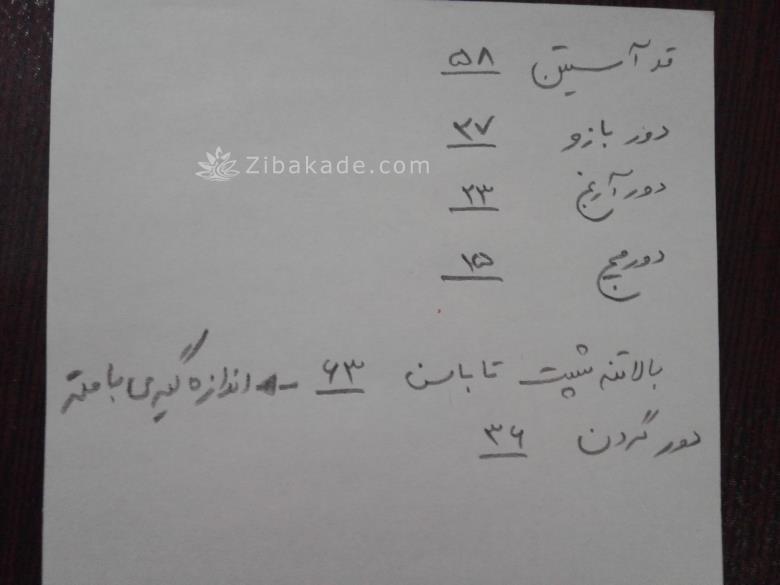 قد آستین ۵۸
دور بازو ۳۷
Zibakade.com
دور آرنج ۲۳
دور مچ ۱۵
بالاتنه پشت تا باسن ۶۳ اندازه گیری با متر
دور گردن ۳۶